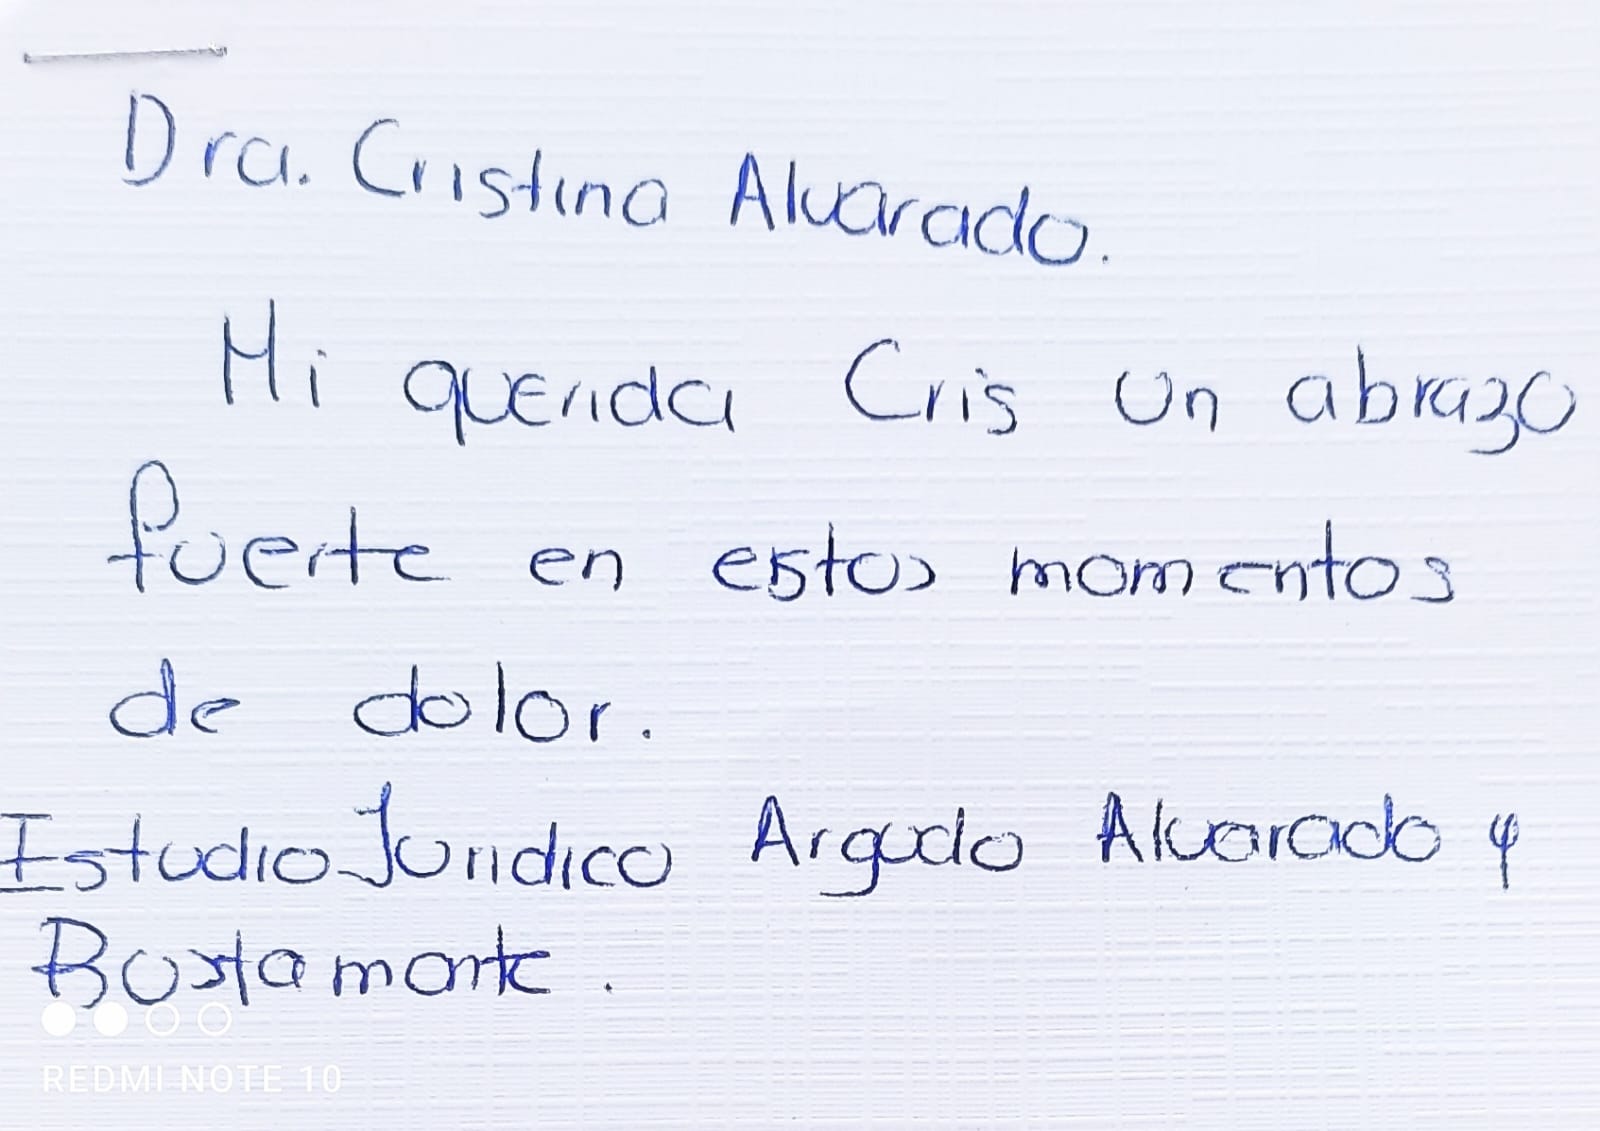 Dra. Cristina Alvarado.
Mi querida Cris un abrazo
fuerte en estos momentos
de dolor.
Estudio Juridico Argudo Alvarado y
Bustamante.
REDMI NOTE 10